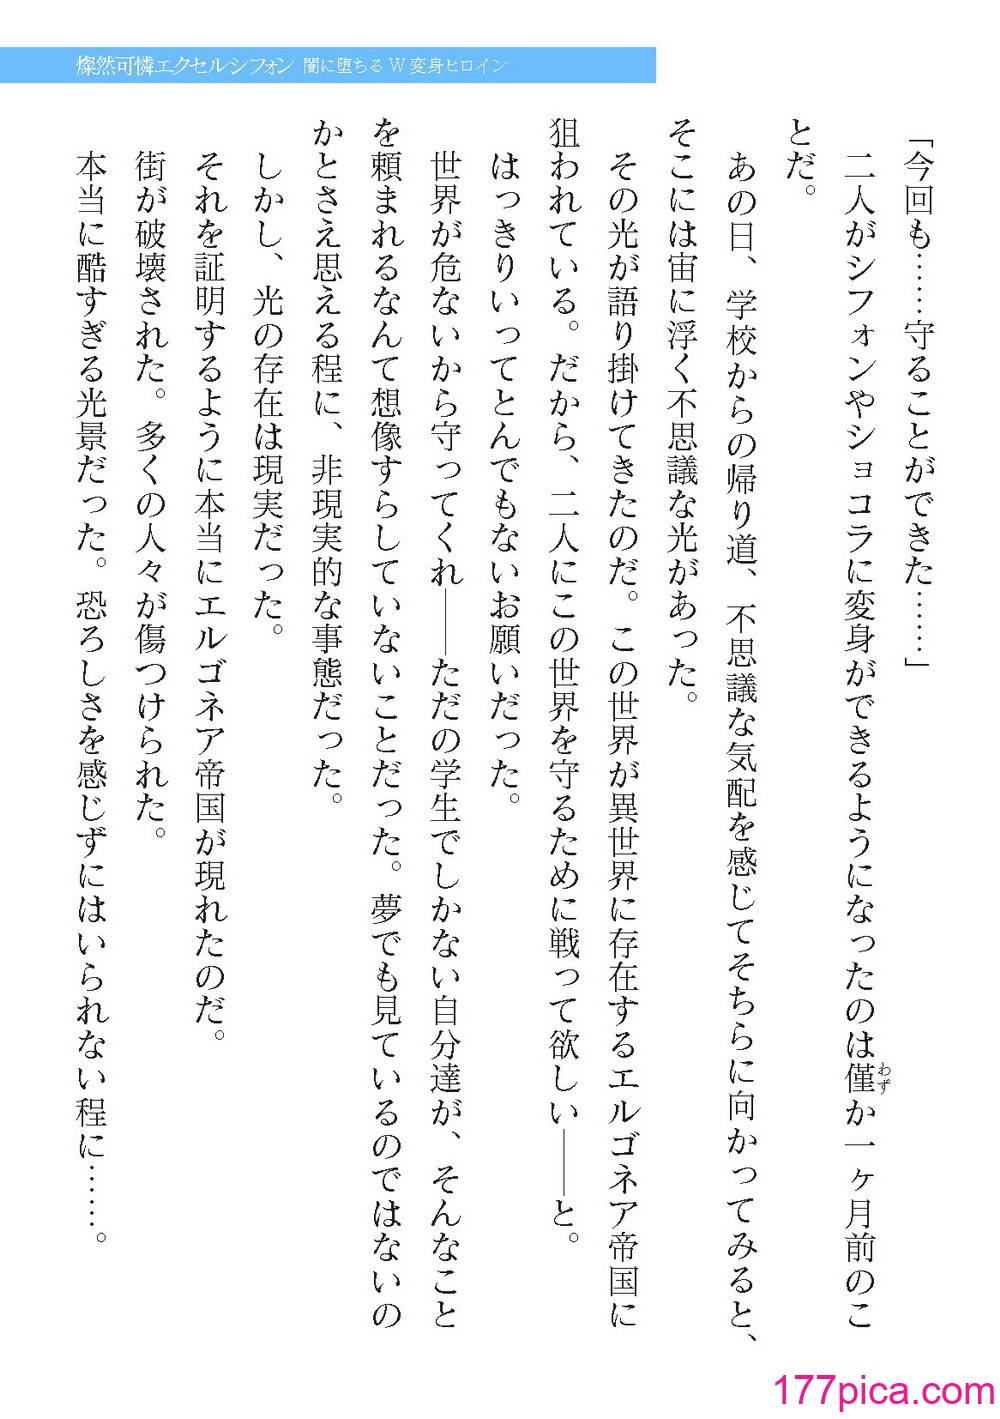 燦然可憐エクセルシフォン 闇に堕ちるW変身ヒロイン
「今回も……守ることができた……」
二人がシフォンやショコラに変身ができるようになったのは僅か一ヶ月前のこ
わず
とだ。
あの日、学校からの帰り道、不思議な気配を感じてそちらに向かってみると、
そこには宙に浮く不思議な光があった。
その光が語り掛けてきたのだ。この世界が異世界に存在するエルゴネア帝国に
狙われている。だから、二人にこの世界を守るために戦って欲しい――と。
はっきりいってとんでもないお願いだった。
世界が危ないから守ってくれ――ただの学生でしかない自分達が、そんなこと
を頼まれるなんて想像すらしていないことだった。夢でも見ているのではないの
かとさえ思える程に、非現実的な事態だった。
しかし、光の存在は現実だった。
それを証明するように本当にエルゴネア帝国が現れたのだ。
街が破壊された。多くの人々が傷つけられた。
本当に酷すぎる光景だった。恐ろしさを感じずにはいられない程に……。
177pica.com